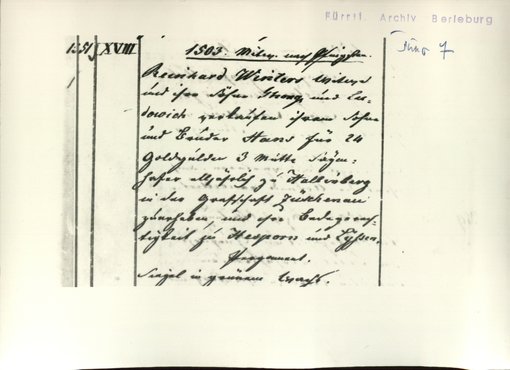 Fürstl. Archiv Berleburg
7
1351 XVIII
1503. Mitw. nach Pfingsten.
Reinhard Winters Witwe
und ihre Söhne Georg und Lu-
dowich verkaufen ihrem Sohne
und Bruder Hans für 24
Goldgulden 3 Mütte
hafer alljährlich zu Hallenberg
in der Grafschaft
zuerheben, und ihre
tigkeit zu Hesporn und Lyßen.
Pergament.
Siegel in grünem Wachs.